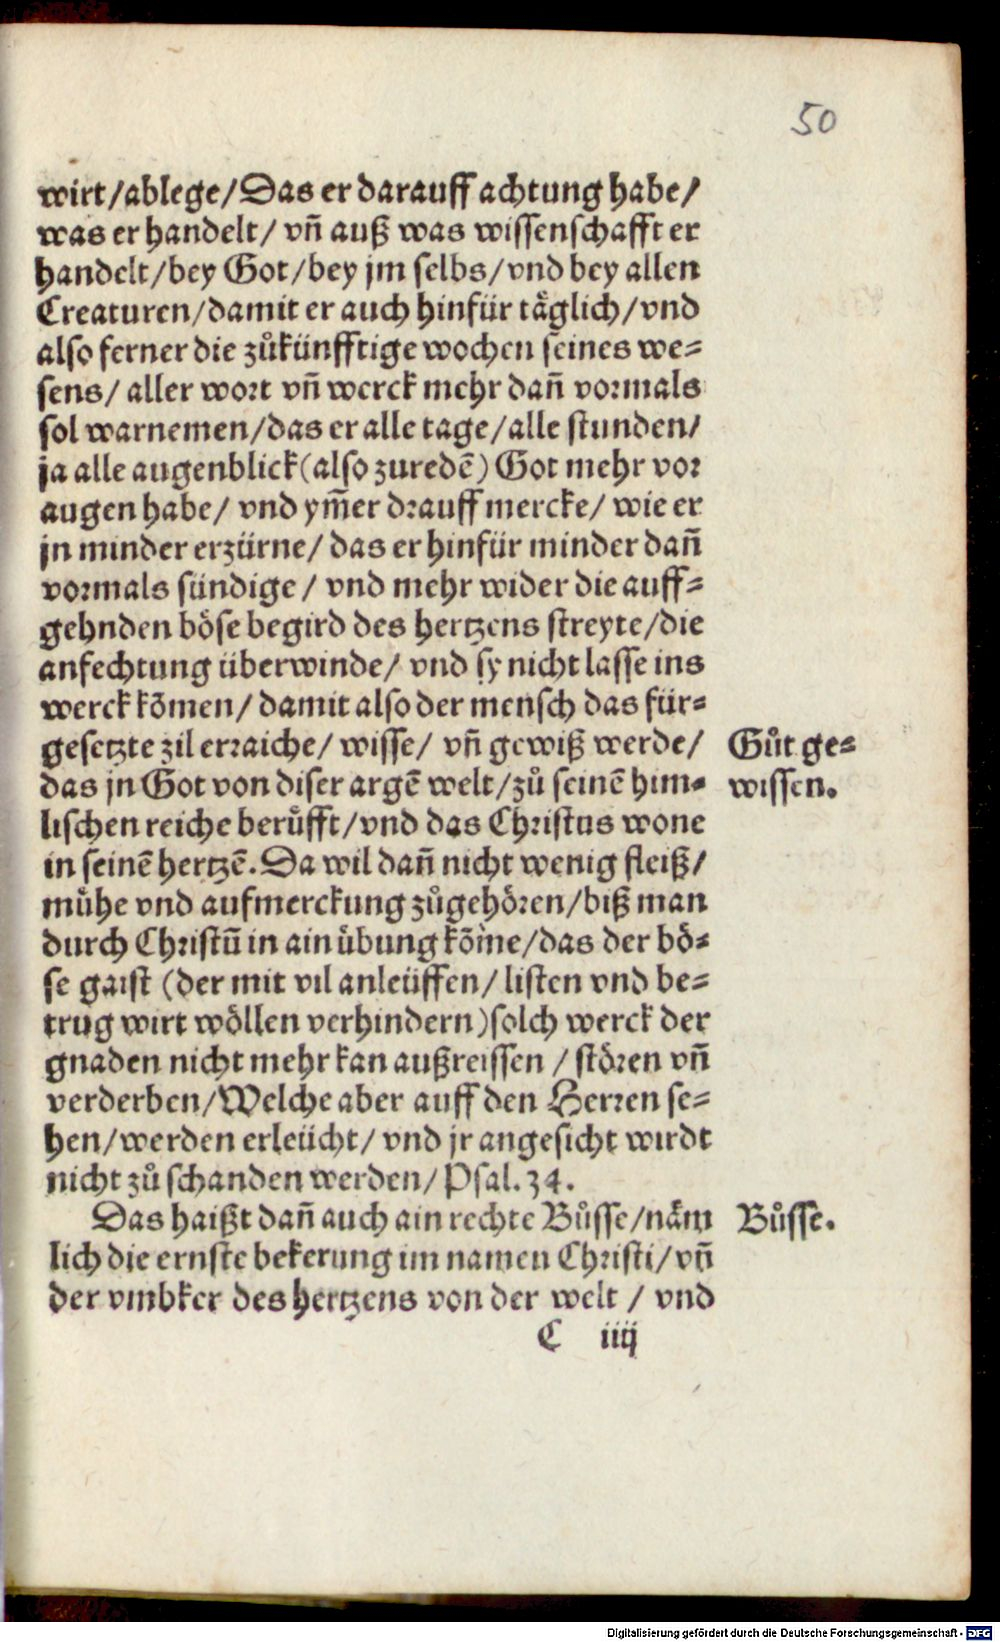 50
wirt/ablege/Das er darauff achtung habe/
was er handelt/ vñ auß was wissenschafft er
handelt/bey Got/bey jm selbs/vnd bey allen
Creaturen/damit er auch hinfür täglich/vnd
also ferner die zůkünfftige wochen seines we⸗
sens/ aller wort vñ werck mehr dañ vormals
sol warnemen/das er alle tage/alle stunden/
ja alle augenblick(also zuredē) Got mehr vor
augen habe/ vnd ym̄er drauff mercke/ wie er
jn minder erzürne/ das er hinfür minder dañ
vormals sündige/ vnd mehr wider die auff⸗
gehnden böse begird des hertzens streyte/die
anfechtung überwinde/ vnd sy nicht lasse ins
werck kõmen/ damit also der mensch das für⸗
gesetzte zil erraiche/ wisse/ vñ gewiß werde/
Gůt ge⸗
das jn Got von diser argē welt/zů seinē him⸗
wissen.
lischen reiche berüfft/vnd das Christus wone
in seinē hertzē. Da wil dañ nicht wenig fleiß/
mühe vnd aufmerckung zůgehören/biß man
durch Christū in ain übung kõme/das der bö⸗
se gaist (der mit vil anleüffen/ listen vnd be⸗
trug wirt wöllen verhindern)solch werck der
gnaden nicht mehr kan außreissen / stören vñ
verderben/Welche aber auff den Herren se⸗
hen/werden erleücht/ vnd jr angesicht wirdt
nicht zů schanden werden/ Psal. 34.
Das haißt dañ auch ain rechte Bůsse/näm
Bůsse.
lich die ernste bekerung im namen Christi/ vñ
der vmbker des hertzens von der welt / vnd
C iiij
Digitalisierung gefördert durch die Deutsche Forschungsgemeinschaft - DFG